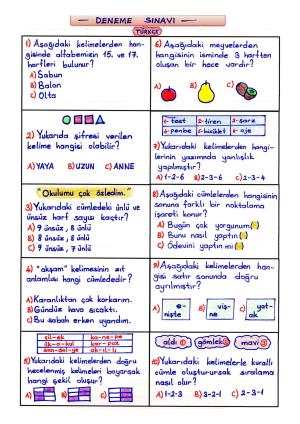 DENEME SINAVI
TÜRKÇE
1) Aşağıdaki kelimelerden han-
gisinde alfabemizin 15. ve 17.
harfleri bulunur?
A) Sabun
B) Balon
C) Olta
2) Yukarıda şifresi verilen
kelime hangisi olabilir?
A) YAYA B) UZUN C) ANNE
"Okulumu çok özledim."
3) Yukarıdaki cümledeki ünlü ve
ünsüz harf sayısı kaçtır?
A) 9 ünsüz, 8 ünlü
B) 8 ünsüz, 8 ünlü
C) 9 ünsüz, 7 ünlü
4) "akşam" kelimesinin zıt
anlamlısı hangi cümlededir?
A) Karanlıktan çok korkarım.
B) Gündüz hava sıcaktı.
C) Bu sabah erken uyandım.
çil-ek ka-ne-pe
ilk-o-kul kar-puz
san-dal-ye ak-ıl-lı
5) Yukarıdaki kelimelerden doğru
hecelenmiş kelimeleri boyarsak
hangi şekil oluşur?
A) B) C)
6) Aşağıdaki meyvelerden
hangisinin isminde 3 harften
oluşan bir hece vardır?
A) B) C)
1- test 2- tiren 3- sarz
4- penbe 5- bisiklet 6- oje
7) Yukarıdaki kelimelerden hangi-
lerinin yazımında yanlışlık
yapılmıştır?
A) 1-2-6 B) 3-6-2 C) 2-3-4
8) Aşağıdaki cümlelerden hangisinin
sonuna farklı bir noktalama
işareti konur?
A) Bugün çok yorgunum( )
B) Bunu nasıl yaptın( )
C) Ödevini yaptın mı( )
9) Aşağıdaki kelimelerden han-
gisi satır sonunda doğru
ayrılmıştır?
A) e-
nişte
B) viş-
ne
C) yat-
ak
aldı 1 gömlek 2 mavi 3
10) Yukarıdaki kelimelerle kurallı
cümle oluşturursak sıralama
nasıl olur?
A) 1-2-3 B) 3-2-1 C) 2-3-1